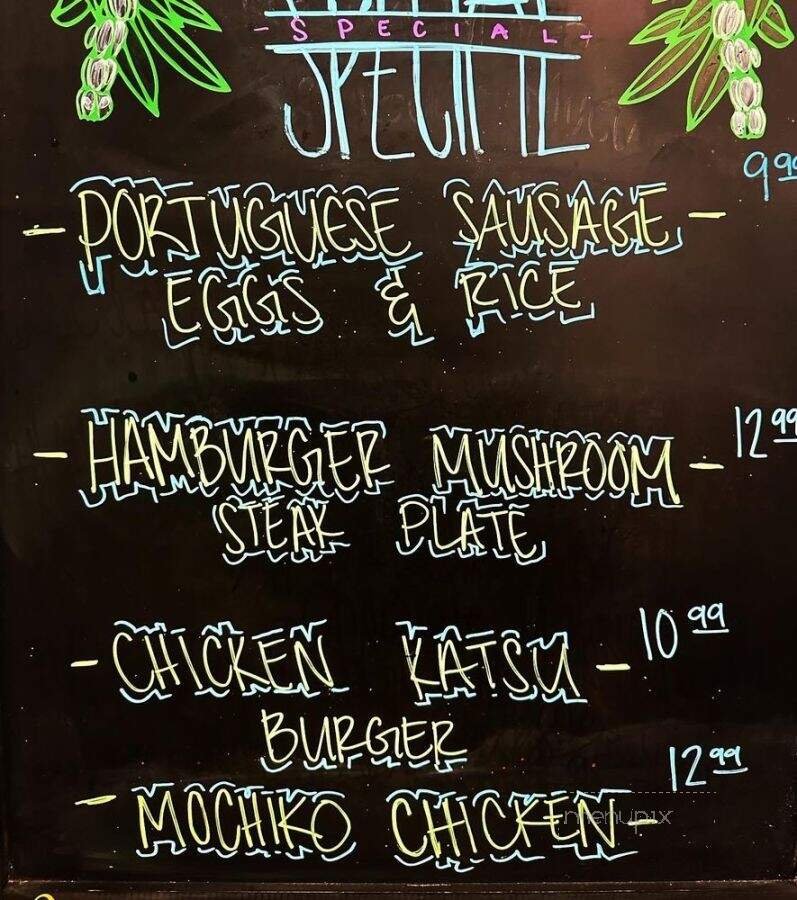 - SPECIAL -
SPECIAL
9 99
- PORTUGUESE SAUSAGE -
EGGS & RICE
- HAMBURGER MUSHROOM - 12 99
STEAK PLATE
- CHICKEN KATSU - 10 99
BURGER
12 99
- MOCHIKO CHICKEN -
menupix